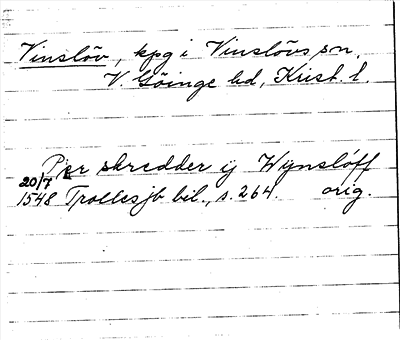 Vinslöv, kpg i Vinslövs sn,
V. Göinge hd, Krist. l.
Per skredder ij Wynsløff
20/7
1548 Trollesjb bil., s. 264. orig.